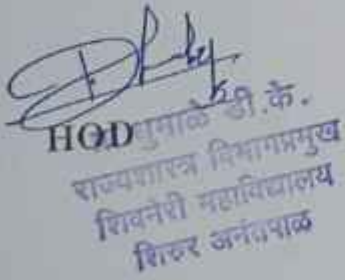 HOD
डी.के.
राज्यशास्त्र विभागप्रमुख
शिवनेरी महाविद्यालय
शिरुर अनंतपाळ